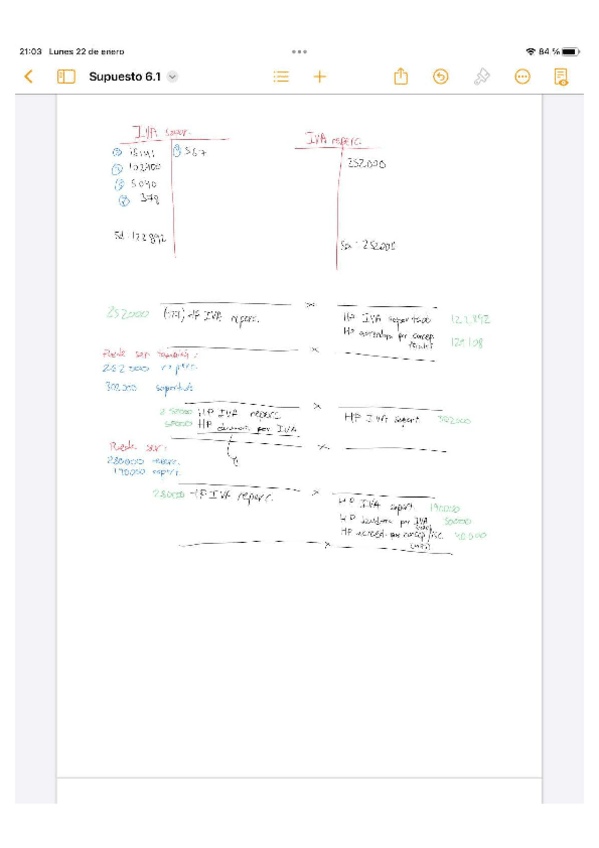 21:03 Lunes 22 de enero
84 %
Supuesto 6.1
IVA sopor.
IVA reperc.
567
252000
102400
5040
378
Sd: 122892
Sa: 252000
252000 (477) HP IVA reperc.
HP IVA soportado 122892
HP acreedora por concep
Puede ser también:
252000 reperc.
302000 soportado
HP IVA reperc.
50000 HP deudora por IVA
HP IVA soport. 302000
Puede ser:
280000 reperc.
190000 soport.
280000 HP IVA reperc.
HP IVA soport. 190000
HP deudora por IVA 50000
HP acreed. por concep fisc. 40000